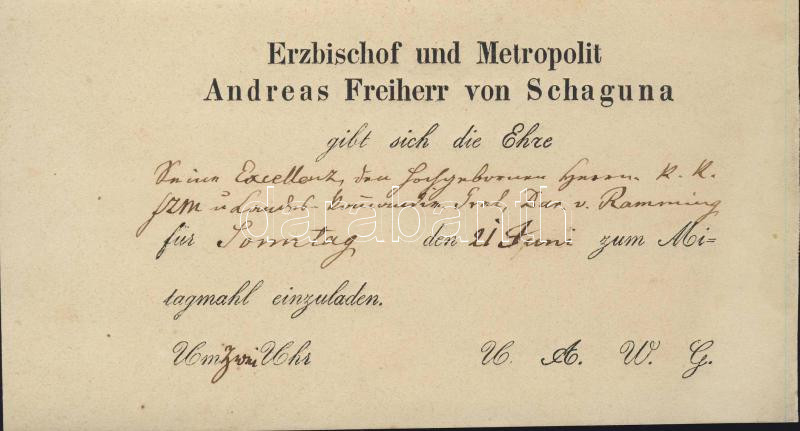 Erzbischof und Metropolit
Andreas Freiherr von Schaguna
gibt sich die Ehre
Seine Excellenz, den Hochgebornen Herrn K. K.
FZM u Landes- Bar v. Ramming
für Sonntag den 21 Juni zum Mi-
tagmahl einzuladen.
Um zwei Uhr U. A. W. G.
darabanth